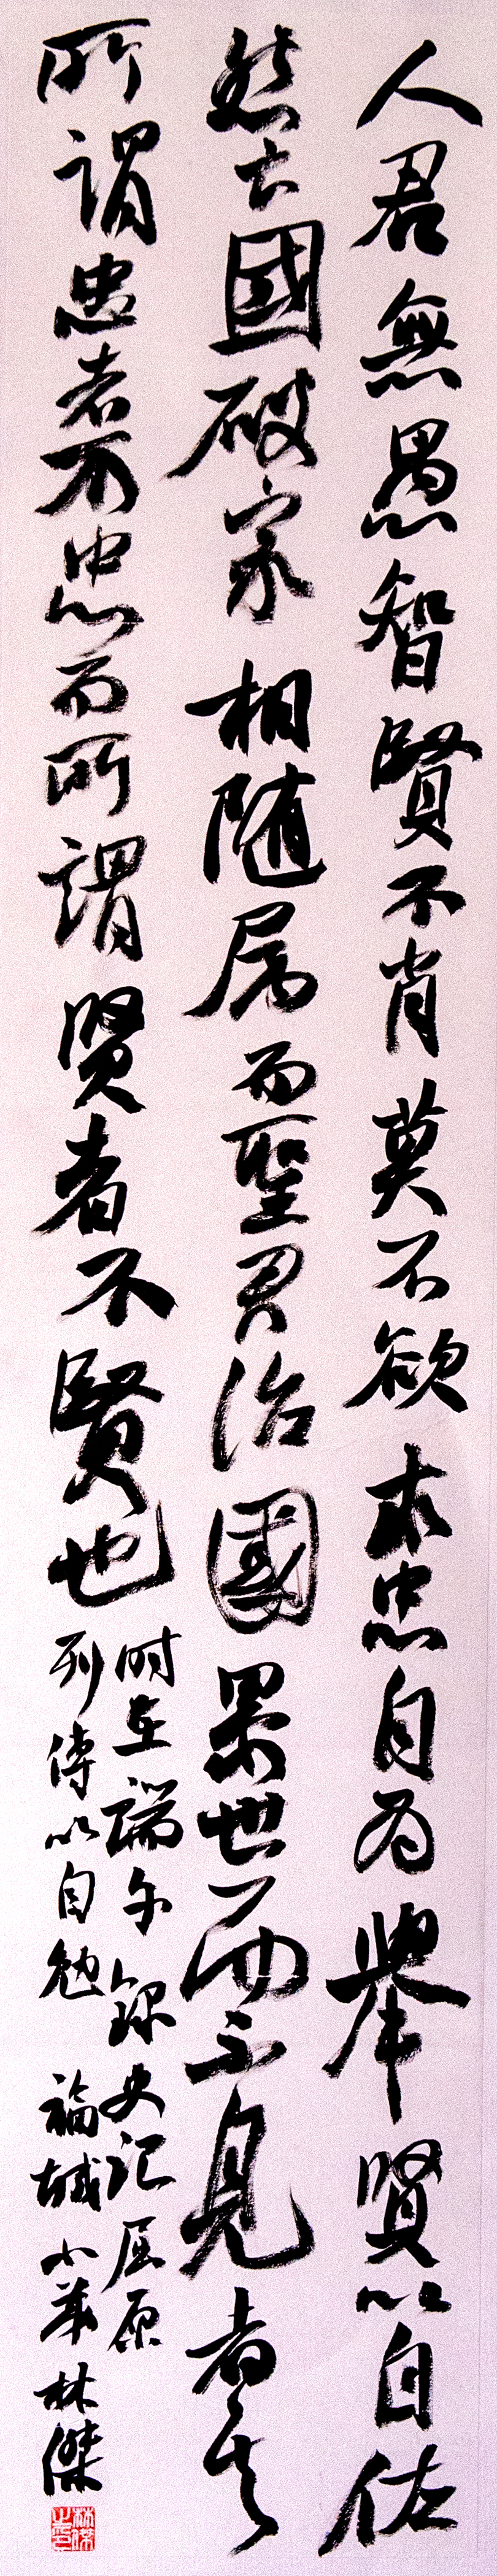 人君無愚智賢不肖莫不欲求忠自为舉賢以自佐
然亡國破家相随属而聖君治國累世而不見者其
所謂忠者不忠而所謂賢者不賢也
时在端午錄史记屈原
列傳以自勉 福城小 林傑